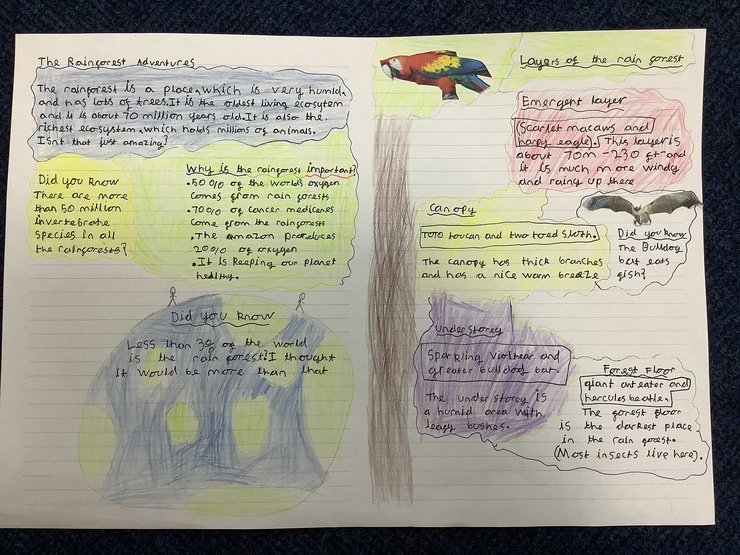 The Rainforest Adventures
The rainforest is a place, which is very humid,
and has lots of trees. It is the oldest living ecosytem
and it is about 70 million years old. It is also the
richest ecosystem, which holds millions of animals.
Isnt that just amazing?
Did you know
There are more
than 50 million
invertebrate
species in all
the rainforests?
Why is the rainforest important?
.50 0/0 of the worlds oxygen
Comes from rain forests
.70 0/0 of cancer medicenes
Come from the rainforests
.The amazon produces
20 0/0 of oxygen
.It is keeping our planet
healthy.
Did you know
Less than 3% of the world
is the rain forest! I thought
it would be more than that
Layers of the rain forest
Emergent layer
(Scarlet macaws and
harpy eagle). This layer is
about 70m - 230 ft and
it is much more windy
and rainy up there
Canopy
Toto toucan and two toed sloth.
The canopy has thick branches
and has a nice warm breeze
Did you know
The Bulldog
bat eats
fish?
Understorey
Sparkling violtear and
greater bulldog bat.
The under storey is
a humid area with
leafy bushes.
Forest Floor
giant anteater and
hercules beatle.
The forest floor
is the darkest place
in the rain forest.
(Most insects live here).